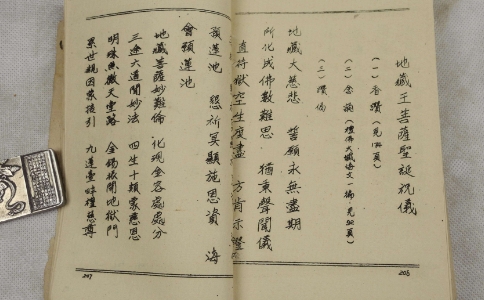 地藏王菩薩聖誕祝儀
（一）香讚（見
（二）念誦（禮
（三）讚偈
地藏大慈悲　誓願永無盡期
所化成佛數難思　猶秉聲聞儀
直待獄空生度盡　方肯示
蓮池　懇祈冥顯施恩資　海
會蓮池
地藏菩薩妙難倫　化現金容處處分
三途六道聞妙法　四生十類蒙慈恩
明珠照徹天堂路　金錫振開地獄門
累世親因蒙接引　九蓮臺畔禮慈尊
207
208